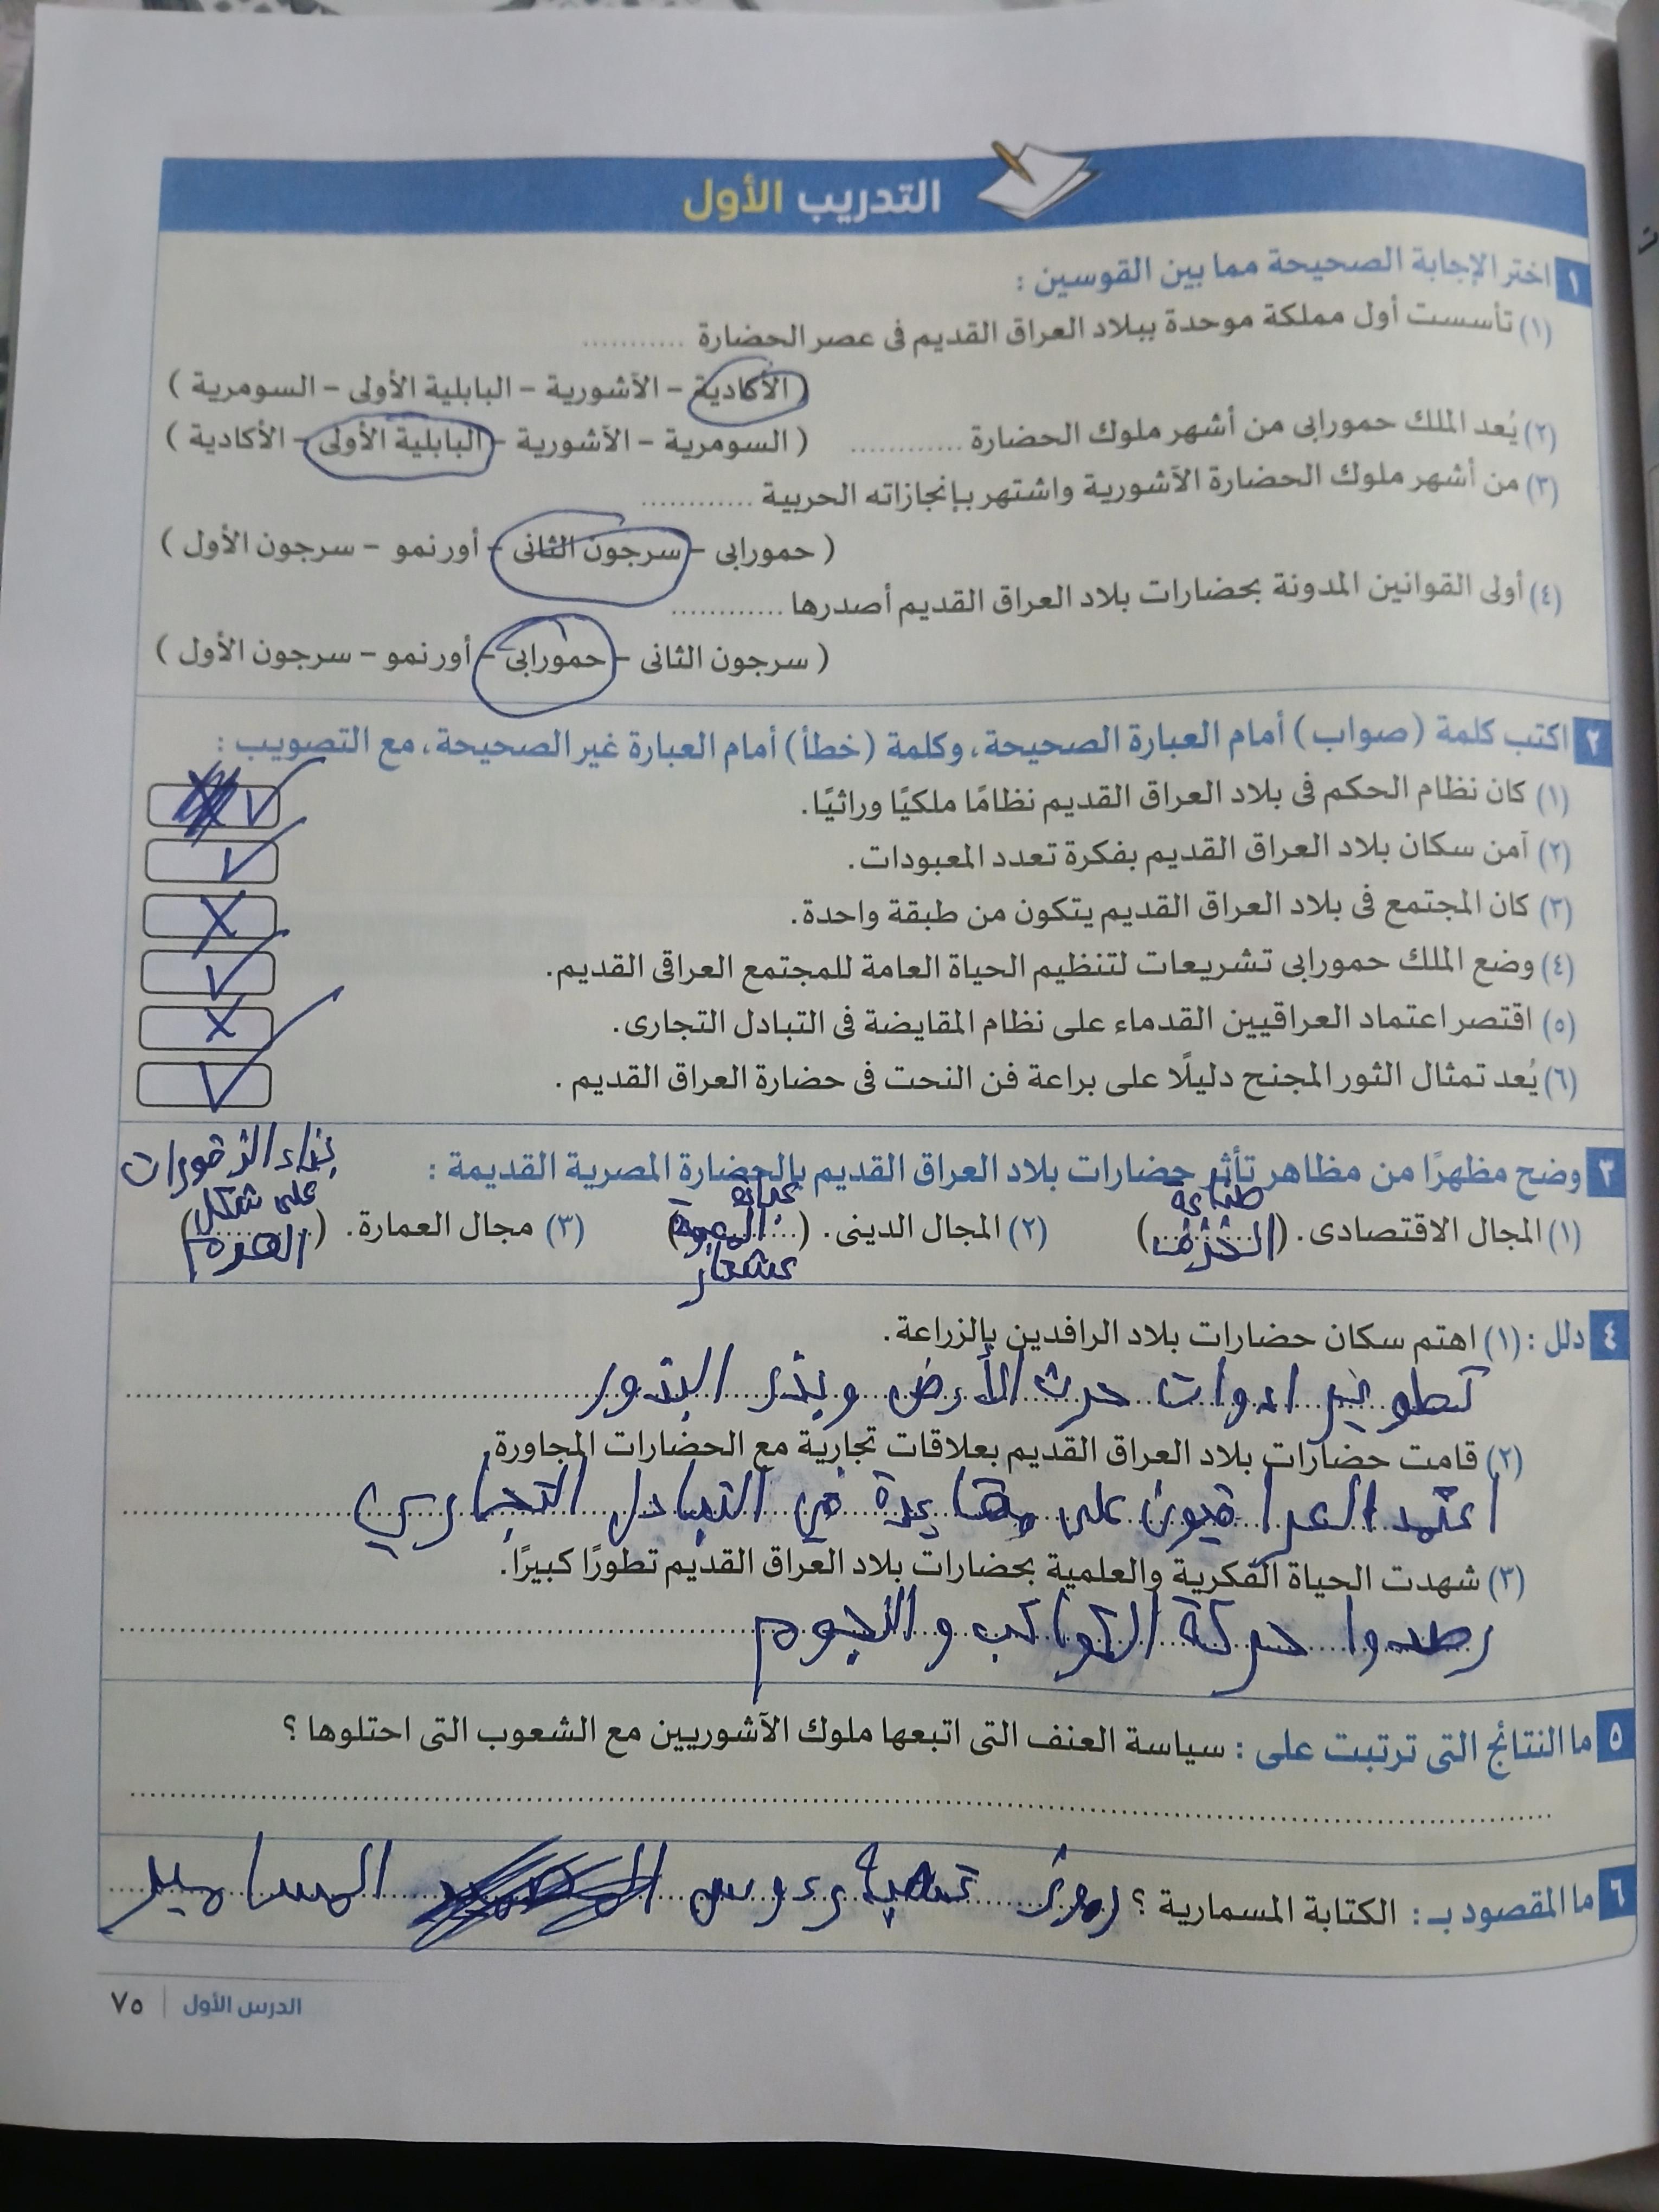 التدريب الأول
١ اختر الإجابة الصحيحة مما بين القوسين :
(١) تأسست أول مملكة موحدة ببلاد العراق القديم فى عصر الحضارة ............
( الأكادية – الآشورية – البابلية الأولى – السومرية )
(٢) يُعد الملك حمورابى من أشهر ملوك الحضارة ............ ( السومرية – الآشورية – البابلية الأولى – الأكادية )
(٣) من أشهر ملوك الحضارة الآشورية واشتهر بإنجازاته الحربية ............
( حمورابى – سرجون الثانى – أورنمو – سرجون الأول )
(٤) أولى القوانين المدونة بحضارات بلاد العراق القديم أصدرها ............
( سرجون الثانى – حمورابى – أورنمو – سرجون الأول )
٢ اكتب كلمة (صواب) أمام العبارة الصحيحة، وكلمة (خطأ) أمام العبارة غير الصحيحة، مع التصويب :
(١) كان نظام الحكم فى بلاد العراق القديم نظامًا ملكيًا وراثيًا. ✓
(٢) آمن سكان بلاد العراق القديم بفكرة تعدد المعبودات. ✓
(٣) كان المجتمع فى بلاد العراق القديم يتكون من طبقة واحدة. X
(٤) وضع الملك حمورابى تشريعات لتنظيم الحياة العامة للمجتمع العراقى القديم. ✓
(٥) اقتصر اعتماد العراقيين القدماء على نظام المقايضة فى التبادل التجارى. X
(٦) يُعد تمثال الثور المجنح دليلًا على براعة فن النحت فى حضارة العراق القديم . ✓
٣ وضح مظهرًا من مظاهر تأثر حضارات بلاد العراق القديم بالحضارة المصرية القديمة :
(١) المجال الاقتصادى. (صناعة الخزف) (٢) المجال الدينى. (............ عشتار) (٣) مجال العمارة. (بناء الزقورات على شكل الهرم)
٤ دلل : (١) اهتم سكان حضارات بلاد الرافدين بالزراعة.
تطوير ادوات حرث الأرض وبذر البذور
(٢) قامت حضارات بلاد العراق القديم بعلاقات تجارية مع الحضارات المجاورة.
اعتمد العراقيون على مقايضة في التبادل التجاري
(٣) شهدت الحياة الفكرية والعلمية بحضارات بلاد العراق القديم تطورًا كبيرًا.
رصدوا حركة الكواكب والنجوم
٥ ما النتائج التى ترتبت على : سياسة العنف التى اتبعها ملوك الآشوريين مع الشعوب التى احتلوها ؟
٦ ما المقصود بـ : الكتابة المسمارية ؟ رموز تشبه رءوس المسامير
الدرس الأول | ٧٥